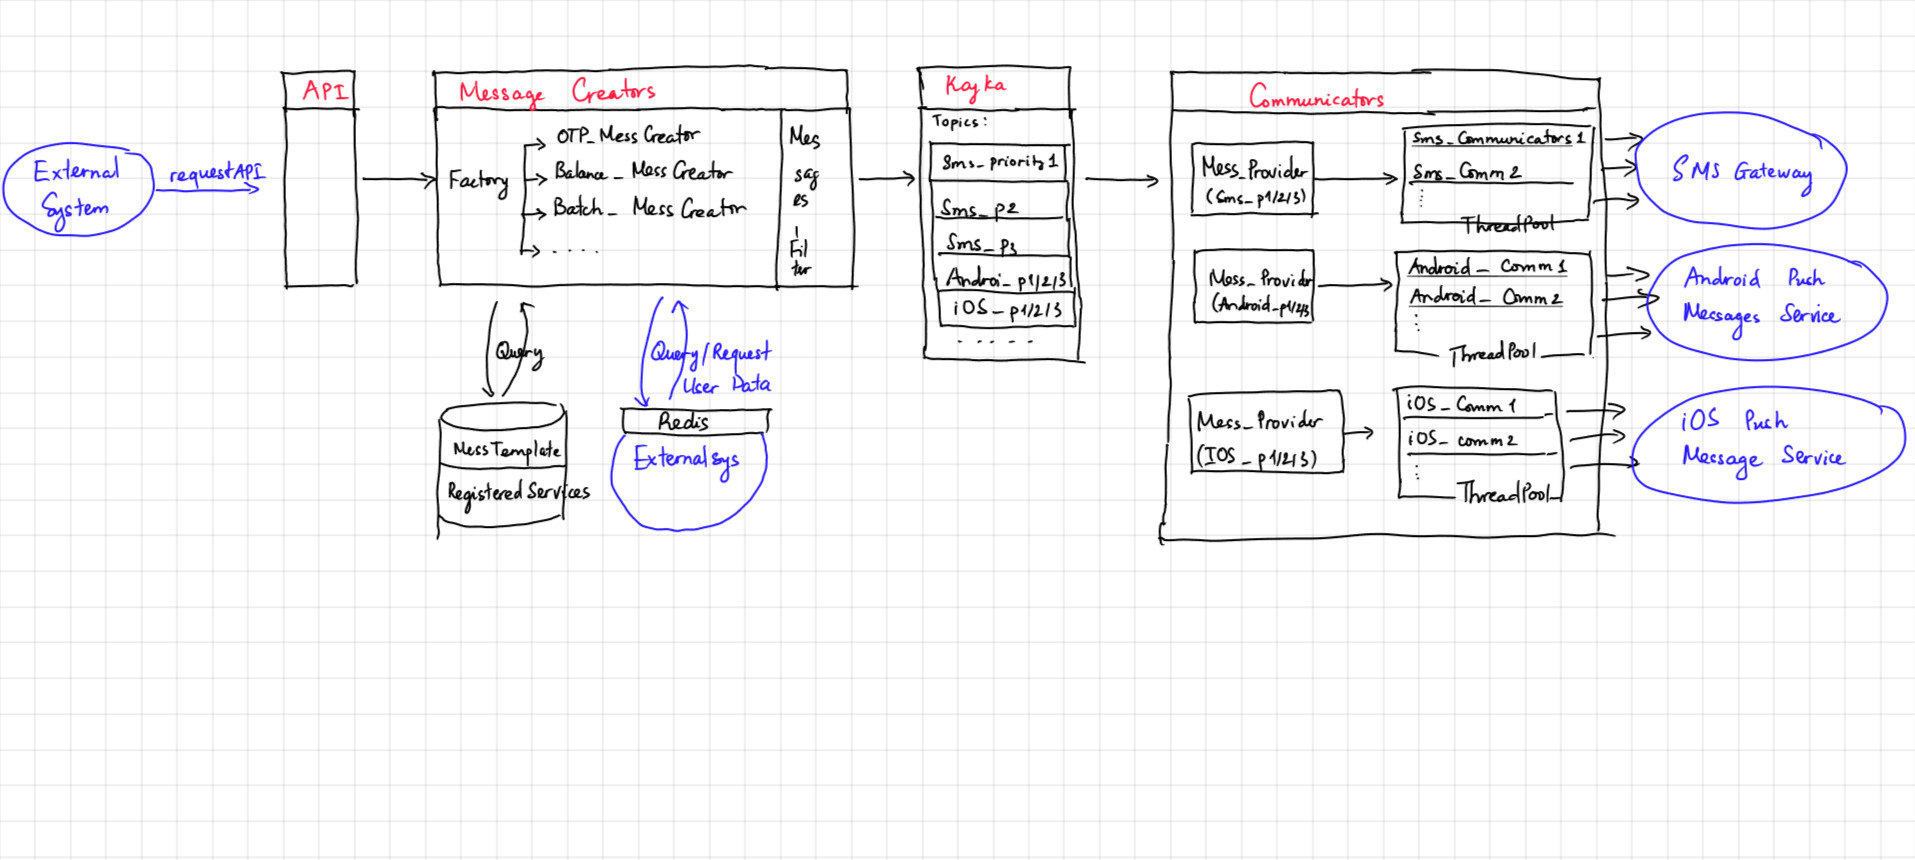 External
System
requestAPI
API
Message Creators
Factory
OTP_Mess Creator
Balance_Mess Creator
Batch_Mess Creator
. . . .
Mes
sag
es
Fil
ter
Query
Mess Template
Registered Services
Query/Request
User Data
Redis
External sys
Kafka
Topics:
Sms_priority1
Sms_p2
Sms_p3
Androi_p1/2/3
iOS_p1/2/3
. . . . .
Communicators
Mess_Provider
(Sms_p1/2/3)
Sms_Communicators 1
Sms_Comm 2
ThreadPool
Mess_Provider
(Android_p1/2/3
Android_Comm 1
Android_Comm 2
ThreadPool
Mess_Provider
(IOS_p1/2/3)
iOS_Comm 1
iOS_comm 2
ThreadPool
SMS Gateway
Android Push
Messages Service
iOS Push
Message Service